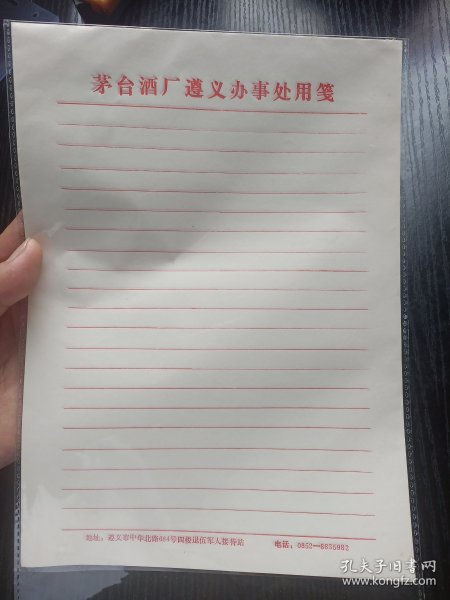 茅台酒厂遵义办事处用笺
地址：遵义市中华北路684号四楼退伍军人接待站 电话：0852—8825982
孔夫子旧书网
www.kongfz.com